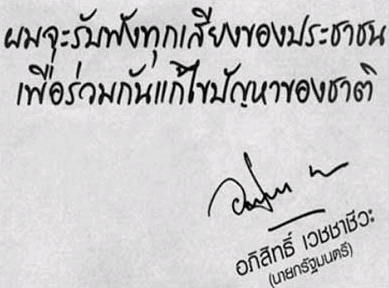 ผมจะรับฟังทุกเสียงของประชาชน
เพื่อร่วมกันแก้ไขปัญหาของชาติ
อภิสิทธิ์ เวชชาชีวะ
(นายกรัฐมนตรี)